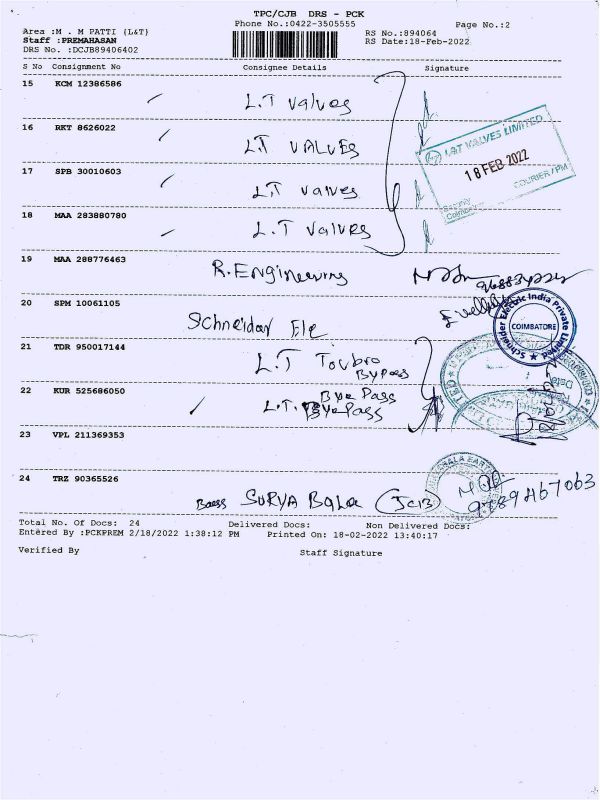 TPC/CJB DRS - PCK
Phone No.:0422-3505555 Page No.:2
Area :M . M PATTI (L&T) RS No.:894064
Staff :PREMAHASAN RS Date:18-Feb-2022
DRS No. :DCJB89406402
S No Consignment No Consignee Details Signature
15 KCM 12386586
L.T valves
16 RKT 8626022
L.T VALVES
L&T VALVES LIMITED
18 FEB 2022
COURIER / PM
Security
17 SPB 30010603
LT valves
18 MAA 283880780
L.T valves
19 MAA 288776463
R.Engineering
20 SPM 10061105
Schneider Ele
Schneider Electric India Private Limited
COIMBATORE
21 TDR 950017144
L.T Toubro
Bypass
22 KUR 525686050
Bye Pass
L.T. Bye Pass
23 VPL 211369353
24 TRZ 90365526
SURYA Bala (JCB)
9789467063
Total No. Of Docs: 24 Delivered Docs: Non Delivered Docs:
Entered By :PCKPREM 2/18/2022 1:38:12 PM Printed On: 18-02-2022 13:40:17
Verified By Staff Signature